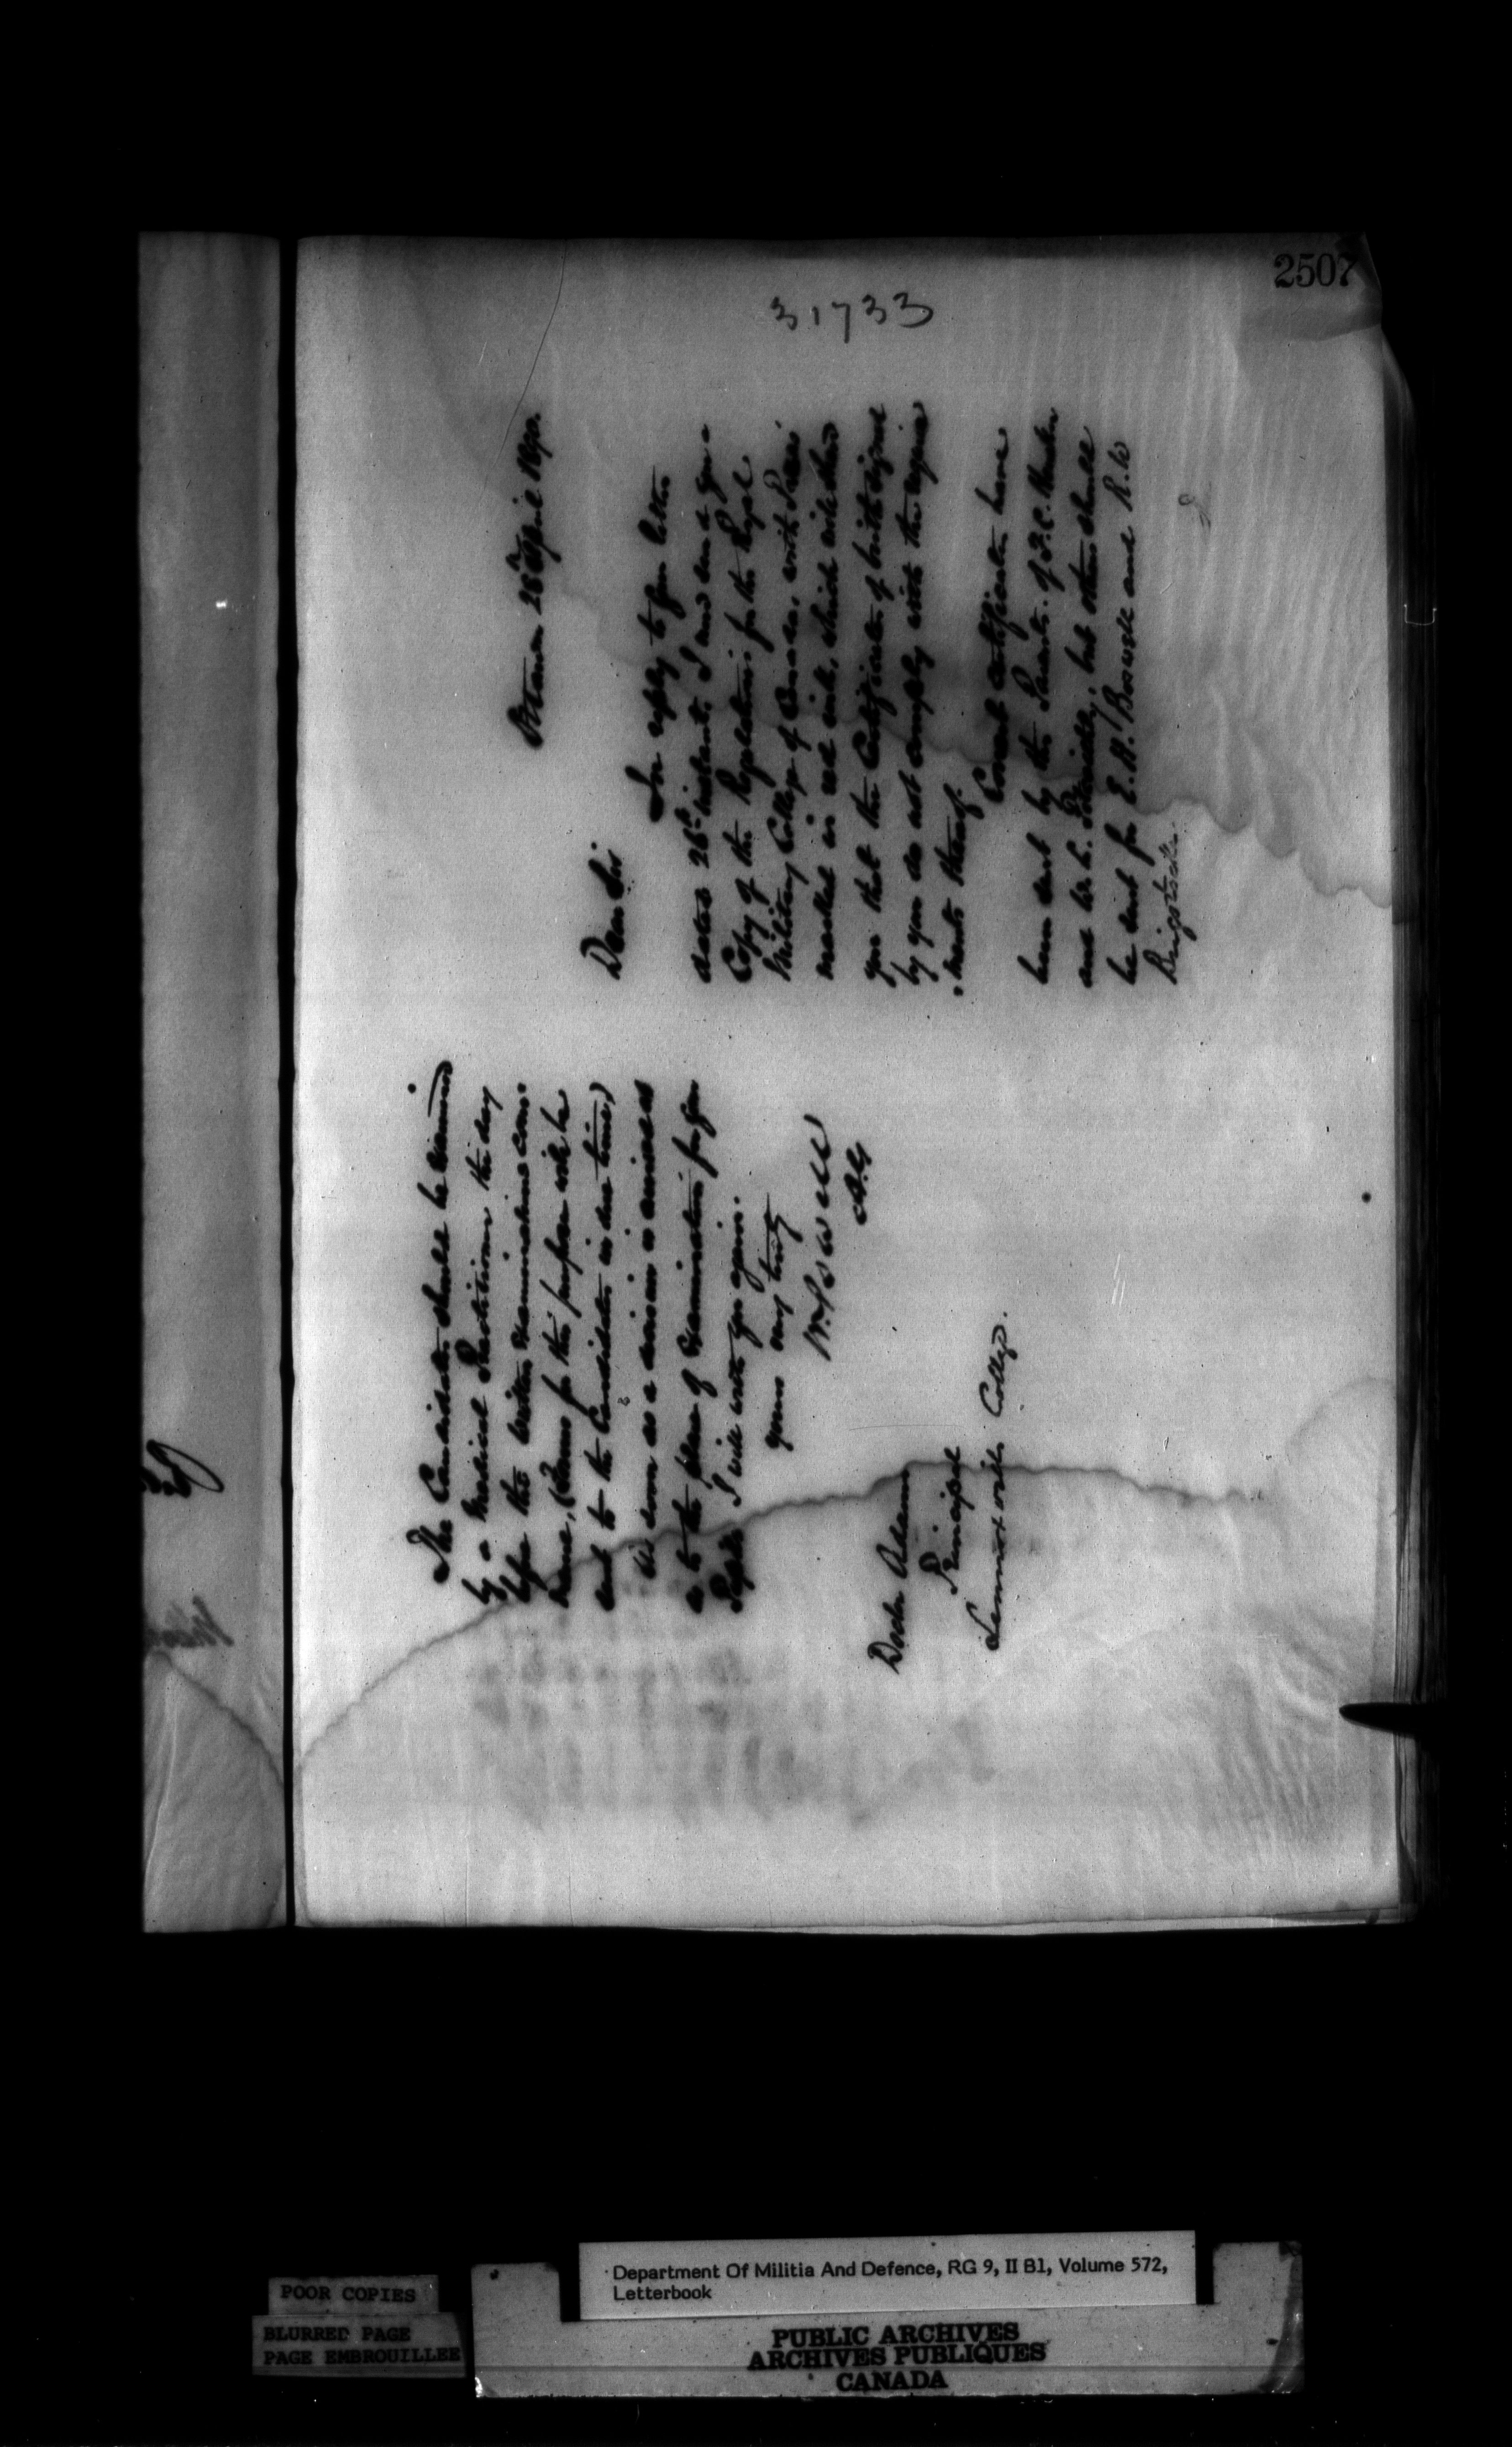 2507
31733
Ottawa 28th April 1890.
Dear Sir
In reply to your letter
dated 26th instant, I now send you a
Copy of the Regulations for the Royal
Military College of Canada, with
marked in red ink, which will show
you that the Certificates of birth signed
by you do not comply with the require
-ments thereof.
Consent certificates have
been sent by the Parents of F.C.
and W. C. but others should
be sent for E. H. Boswell and R. W
The Candidates should be examined
by a Medical Practitioner the day
before the written examinations com-
mence, (Forms for this purpose will be
sent to the Candidates in due time,)
As soon as a decision is arrived at
as to the place of Examination for your
Pupils I will write you again.
Yours very truly
W Powell
AG
Doctor Adams
Principal
Lennoxville College.
Department Of Militia And Defence, RG 9, II B1, Volume 572,
Letterbook
POOR COPIES
BLURRED PAGE
PAGE EMBROUILLEE
PUBLIC ARCHIVES
ARCHIVES PUBLIQUES
CANADA